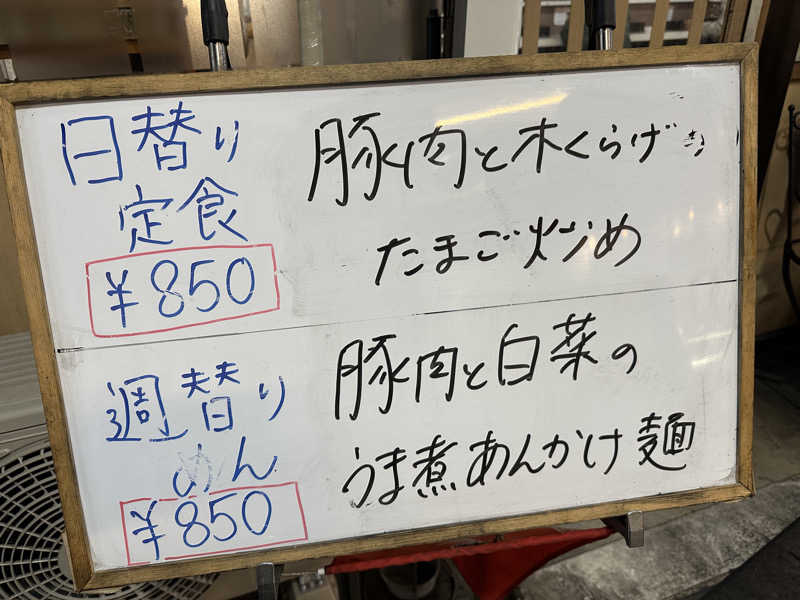 日替り
定食
¥850
豚肉と木くらげの
たまご炒め
週替り
めん
¥850
豚肉と白菜の
うま煮あんかけ麺